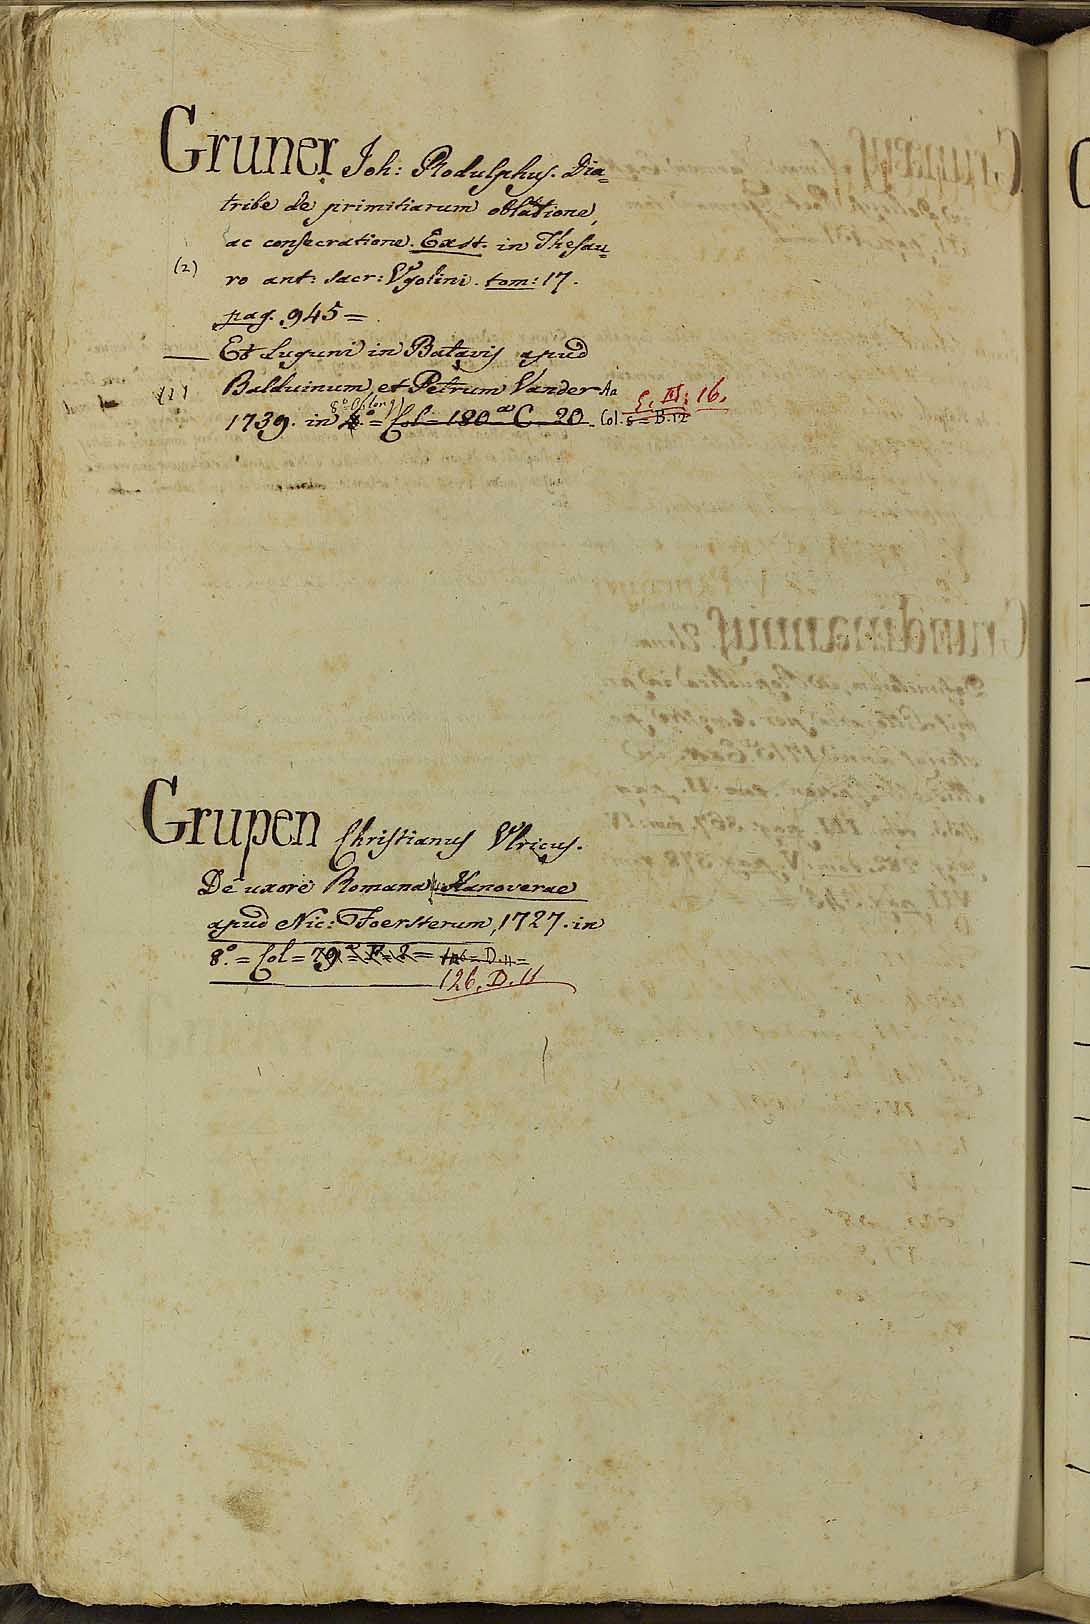 Gruner Joh: Rodulphus. Dia=
tribe de primitiarum oblatione,
ac consecratione. Exst. in Thesau=
(2) ro ant: sacr: Vgolini. tom: 17.
pag. 945 =
Et Luguni in Batavis apud
(1) Balduinum, et Petrum Vander Aa
1739. in 8.° oblong) 4.° = Col = 180 a C. 20. Col. 5 = B. 12 16.
Grupen Christianus Vlricus.
De uxore Romana Hanoverae
apud Nic: Foersterum, 1727. in
8.° = Col = 79 = 126 = D. 11 =
126. D. 11